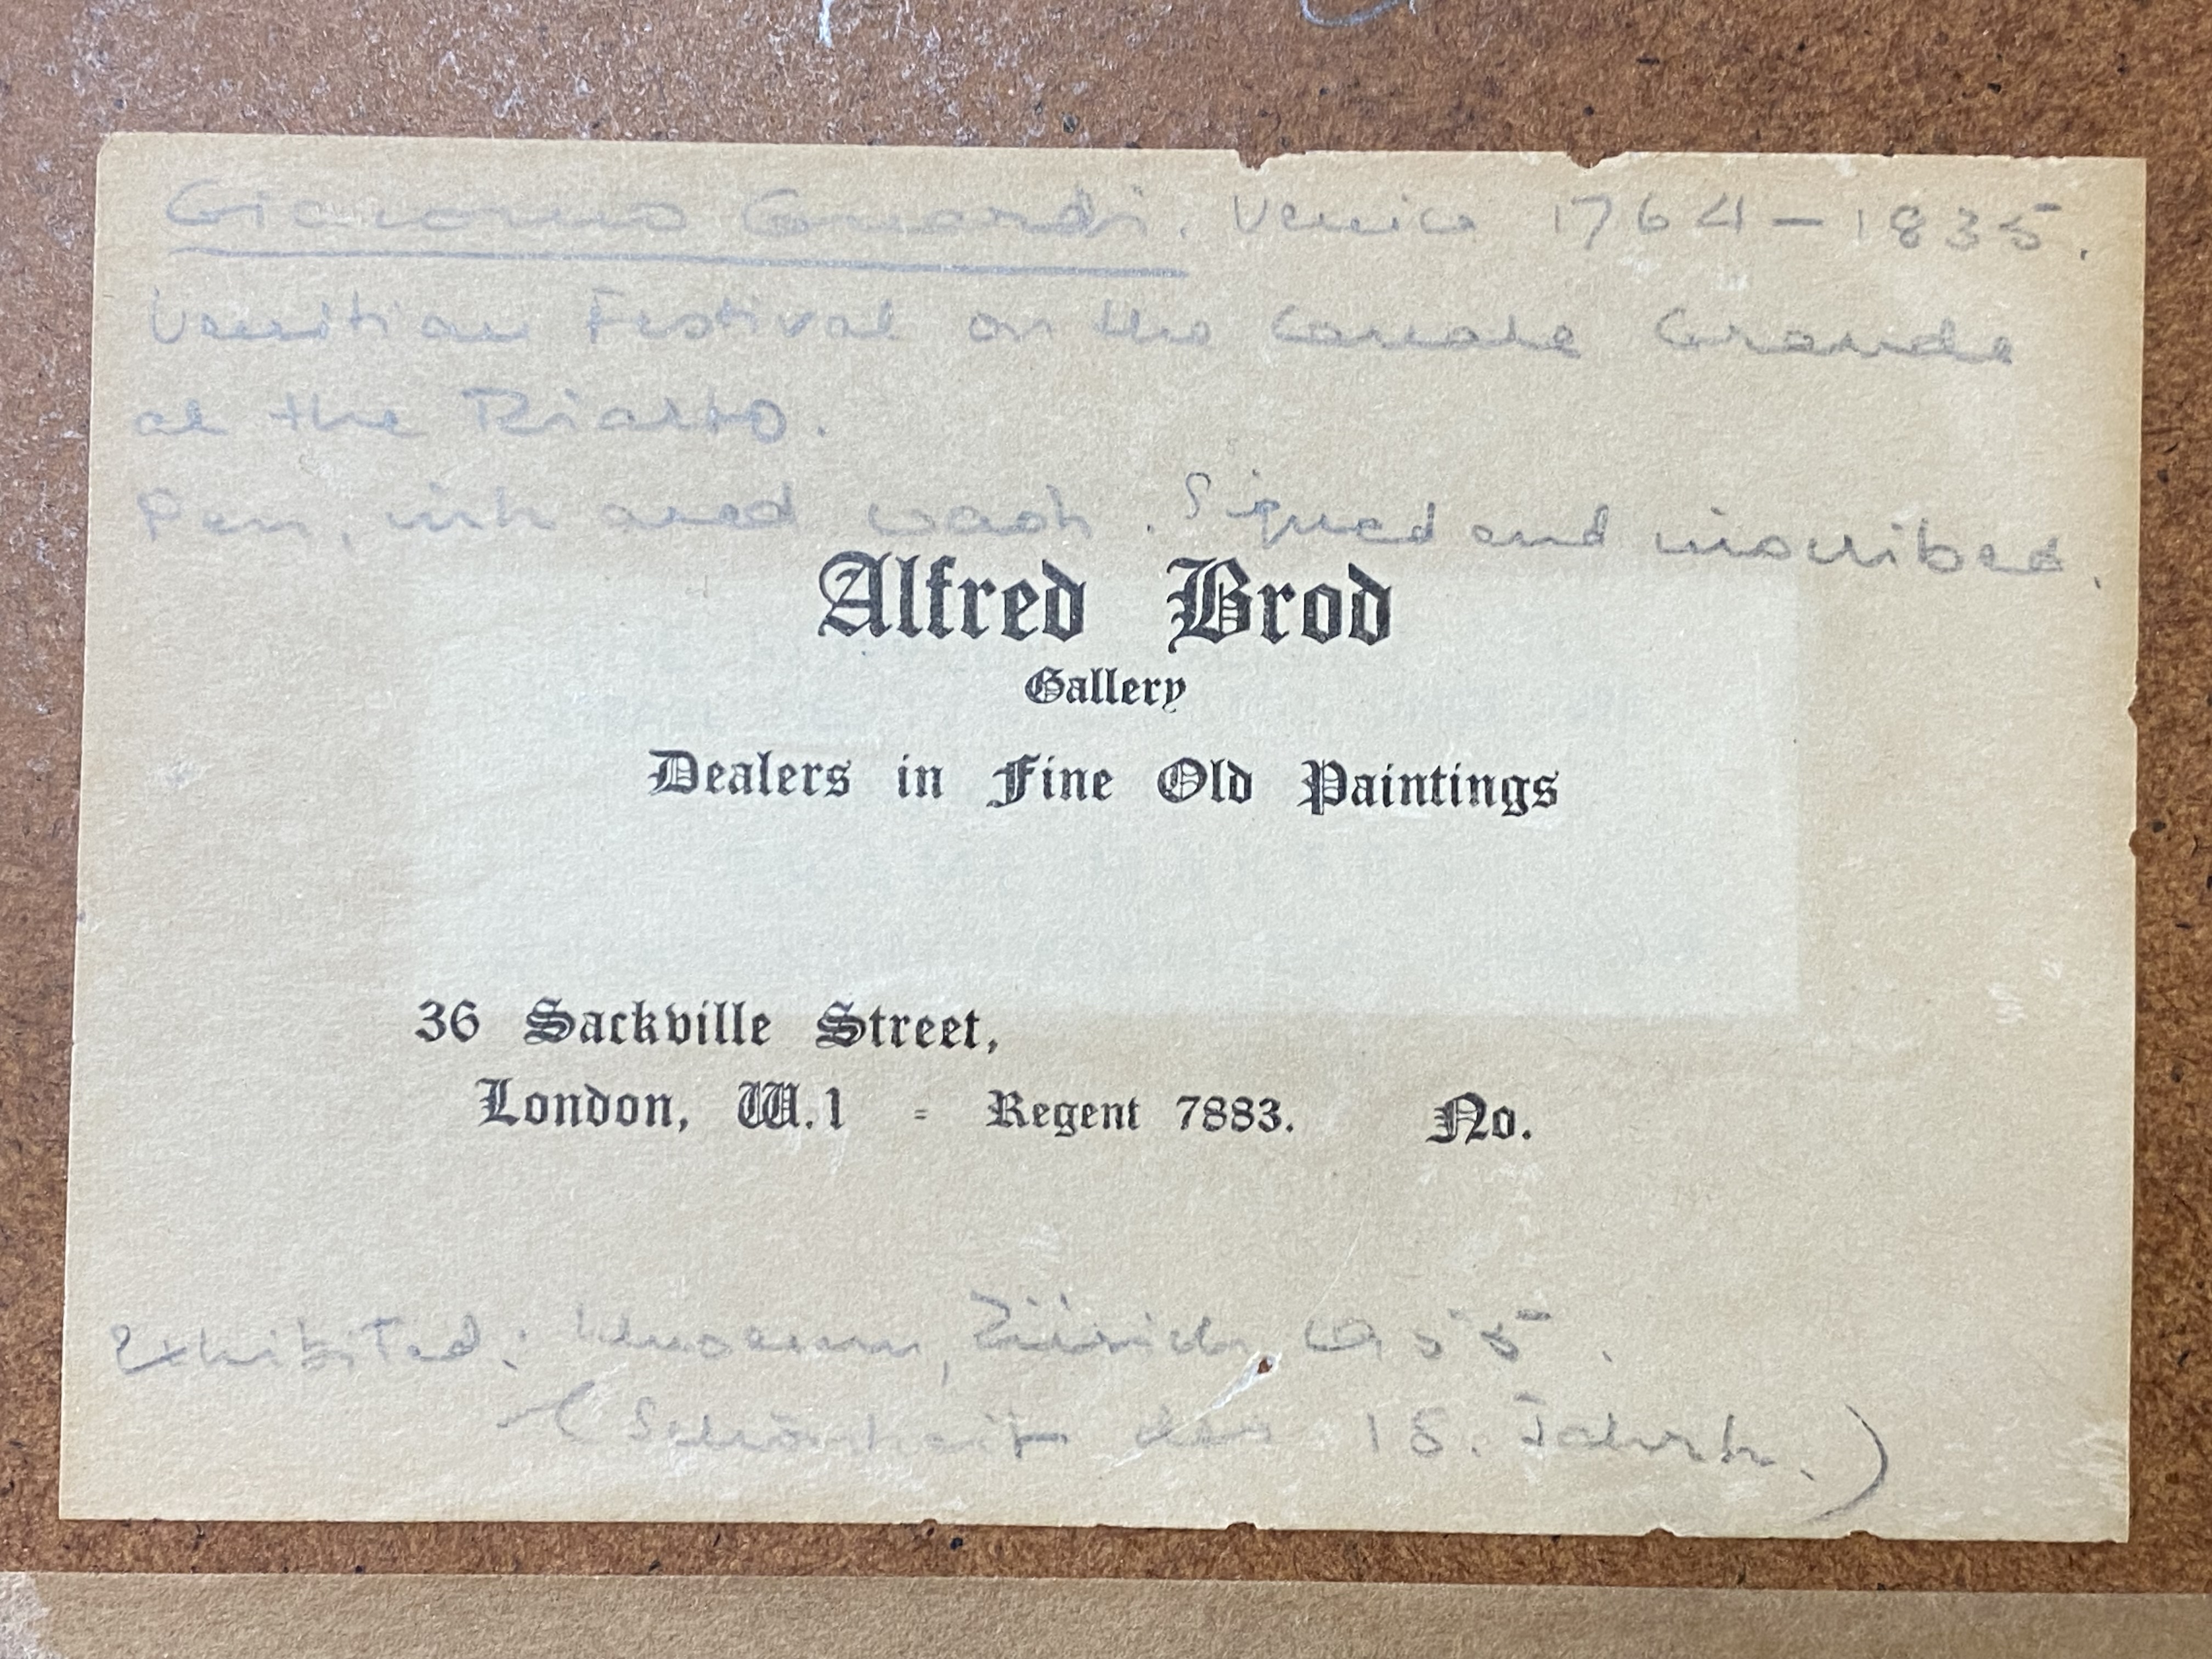 Giacomo Guardi. Venice 1764-1835.
Venitian Festival on the Canale Grande
at the Rialto.
Pen, ink and wash. Signed and inscribed.
Alfred Brod
Gallery
Dealers in Fine Old Paintings
36 Sackville Street,
London, W.1 - Regent 7883. No.
Exhibited: Museum, Zürich, 1955.
(Schönheit des 18. Jahrh.)